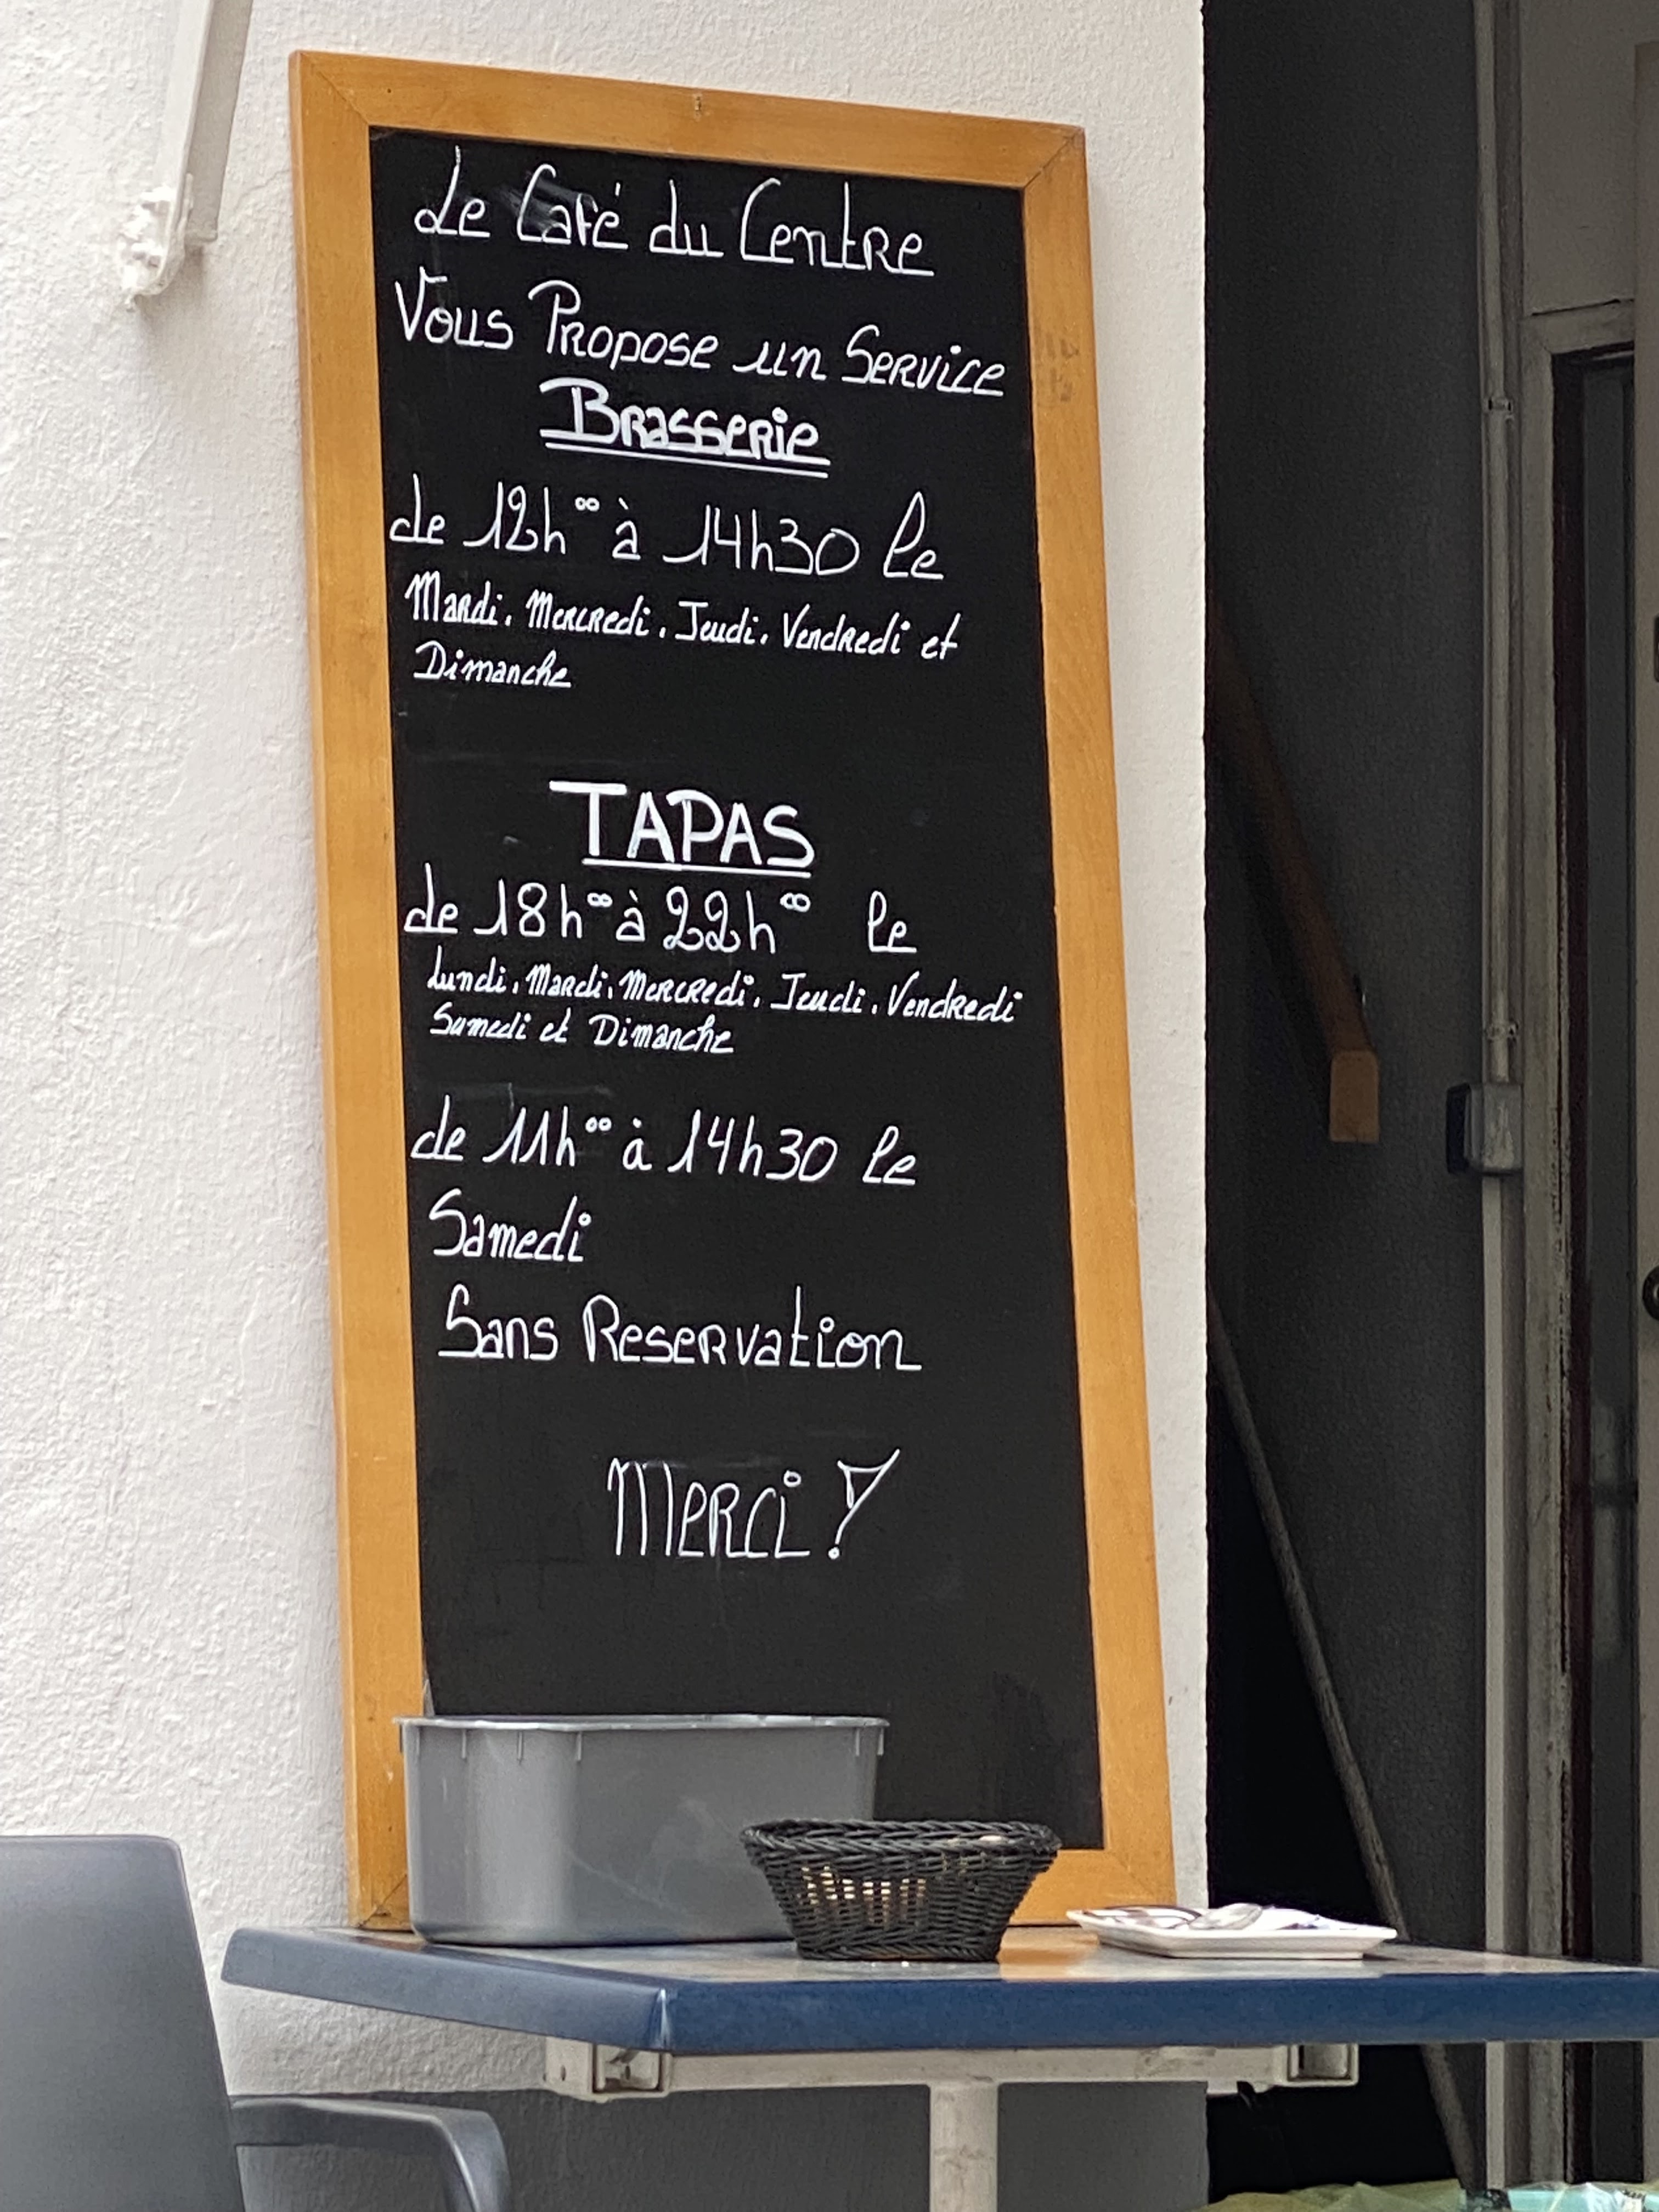 Le Café du Centre
Vous Propose un Service
Brasserie
de 12h°° à 14h30 le
Mardi, Mercredi, Jeudi, Vendredi et
Dimanche
TAPAS
de 18h°° à 22h°° le
Lundi, Mardi, Mercredi, Jeudi, Vendredi
Samedi et Dimanche
de 11h°° à 14h30 le
Samedi
Sans Reservation
Merci !